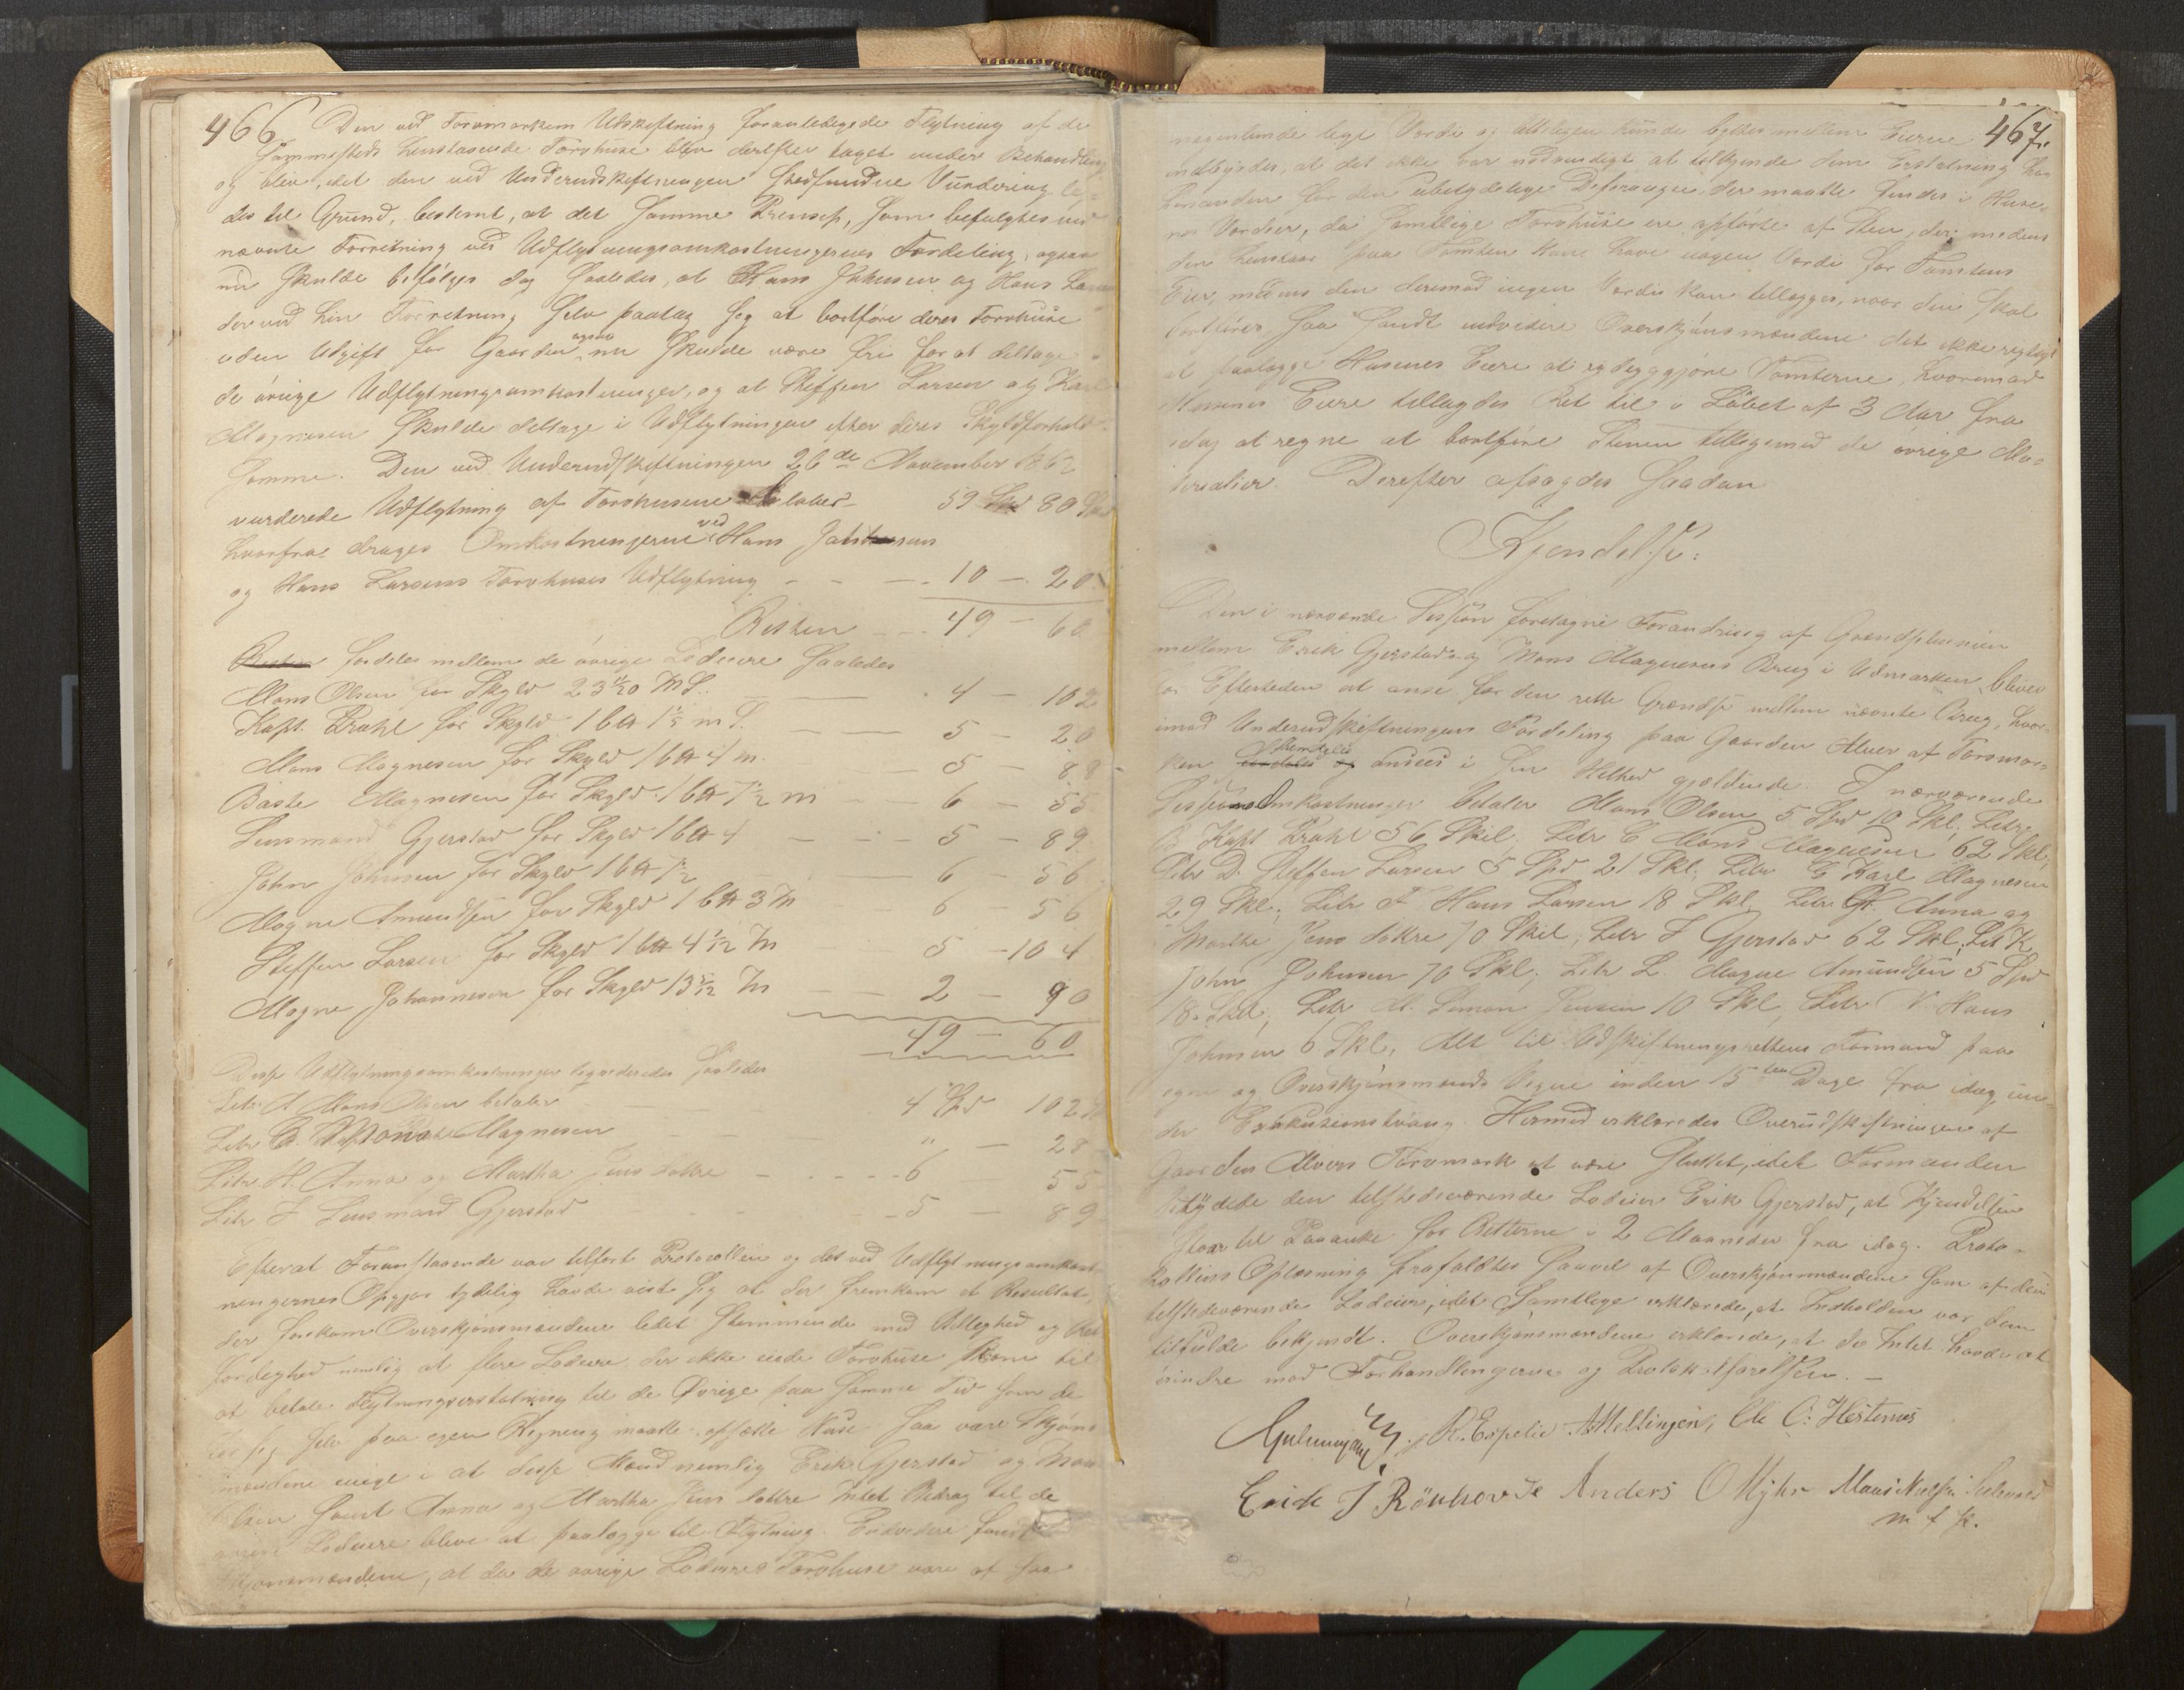 466
Den ved Torvmarkens Udskiftning foranledigede Flytning af de
sammesteds henstaaende Torvhuse blev derefter taget under Behandling
og blev, idet den ved Underudskiftningen stedfundne Vurdering lag-
des til Grund, bestemt, at det samme Princip, som befulgtes ved
nævnte Forretning ved Udflytningsomkostningernes Fordeling, ogsaa
nu skulde befølges dog saaledes, at Hans Johnsen og Hans Larsen
der ved hin Forretning selv paatog sig at bortføre deres Torvhuse
uden Udgift for Gaarden ogsaa nu skulde være fri for at deltage i
de øvrige Udflytningsomkostninger, og at Steffen Larsen og Karl
Magnesen skulde deltage i Udflytningen efter deres Skyldforhold
samme. Den ved Underudskiftningen 26de November 1862
vurderede Udflytning af Torvhusene beløber 59 Spd 80 Skl
hvorfra drages Omkostningerne ved Hans Johnsens
og Hans Larsens Torvhuses Udflytning - - - 10 - 20
Resten - - 49 - 60
Resten fordeles mellem de øvrige Lodeiere saaledes
Mons Olsen for Skyld 23 11/20 m S. 4 - 102
Kapt. Prahl for Skyld 1 btt 1 1/5 m S. 5 - 20
Mons Magnesen for Skyld 1 btt 4 m. 5 - 88
Baste Magnesen for Skyld 1 btt 7 1/2 m 6 - 55
Lensmand Gjerstad for Skyld 1 btt 4 - 5 - 89
John Johnsen for Skyld 1 btt 7 1/2 6 - 56
Magne Amundsen for Skyld 1 btt 3 m 6 - 56
Steffen Larsen for Skyld 1 btt 4 1/12 m 5 - 104
Magne Johannesen for Skyld 13 5/12 m - - 2 - 90
49 - 60
Disse Udflytningsomkostninger saaledes
Litr. A Mons Olsen betaler 4 Spd 102
Litr. C. Mons Magnesen " - 28
Litr. H. Anna og Martha Jens døttre - 6 55
Litr I Lensmand Gjerstad 5 - 89
Efterat Foranstaaende var tilført Protocollen og det ved Udflytningsomkost-
ningernes Opgjør tydelig havde vist sig at der fremkom et Resultat,
der forekom Overskjønsmændene lidet stemmende med Billighed og Ret-
færdighed nemlig at flere Lodeiere der ikke eiede Torvhuse kom til
at betale Flytningserstatning til de Øvrige paa samme Tid som de
for sig selv paa egen Regning maatte opsætte Huse saa vare Skjøns-
mændene enige i at disse Mænd nemlig Erik Gjerstad og Mons
Olsen samt Anna og Martha Jens døttre Intet Bidrag til de
øvrige Lodeiere bleve at paalægge til Flytning. Endvidere fandt
Skjønsmændene, at da de øvrige Lodeieres Torvhuse vare af saa
467.
nogenlunde lige Værdi og alligevel kunde byttes mellem Eierne
indbyrdes, at det ikke var nødvendigt at tilkjende dem Erstatning hos
hinanden for den ubetydelige Differance, der maatte findes i Huse-
nes Værdier, da samtlige Torvhuse ere opførte af Sten, der medens
den henstaar paa Tomten kan have nogen Værdi for Tomtens
Eier, medens den derimod ingen Værdi kan tillægges, naar den skal
bortføres. Saa fandt endvidere Overskjønsmændene det ikke rigtigt
at paalægge Husenes Eiere at rydiggjøre Tomterne, hvorimod
Husenes Eiere tillagdes Ret til i Løbet af 3 Aar fra
idag at regne at bortføre Stenen tilligemed de øvrige Ma-
terialier. Derefter afsagdes saadan
Kjendelse:
Den i nærværende Session foretagne Forandring af Grændselinien
mellem Erik Gjerstads og Mons Magnesens Brug i Udmarken bliver
for Eftertiden at anse for den rette Grændse mellem nævnte Brug, hvor-
imod Underudskiftningens Fordeling paa Gaarden Alver af Torvmar-
ken fremdeles ansees i sin Helhed gjældende. I nærværende
Sessions Omkostninger betaler Mons Olsen 5 Spd 10 Skl. Litr.
B Kapt Prahl 56 Skil. Litr C Mons Magnesen 62 Skl,
Litr D. Steffen Larsen 5 Spd 21 Skl, Litr E Karl Magnesen
29 Skl, Litr F Hans Larsen 18 Skl. Litr H. Anna og
Marthe Jens døttre 70 Skil, Litr I Gjerstad 62 Skl, Lit K
John Johnsen 70 Skl; Litr L. Magne Amundsen 5 Spd
18 Skl, Litr M. Simon Jensen 10 Skl, Litr N Hans
Johnsen 6 Skl, Alt til Udskiftningsrettens Formand paa
egne og Overskjønsmænds Vegne inden 15ten Dage fra idag un-
der Exekusionstvang. Hermed erklæredes Overudskiftningen af
Gaarden Alvers Torvmark at være sluttet, idet Formanden
betydede den tilstedeværende Lodeier Erik Gjerstad, at Kjendelsen
staar til Paaanke for Retterne i 2 Maaneder fra idag. Proto-
kollens Oplæsning frafaldtes saavel af Overskjønsmændene som af den
tilstedeværende Lodeier, idet samtlige erklærede, at Indholden var dem
tilfulde bekjendt. Overskjønsmændene erklærede, at de Intet havde at
erindre mod Forhandlingerne og Protokoltilførselsen. -
R. Espelie A Mellingen, Ole O: Hesternes
Erick J Rönhovde Anders O Mjhr Mons Nielsen
m f P.